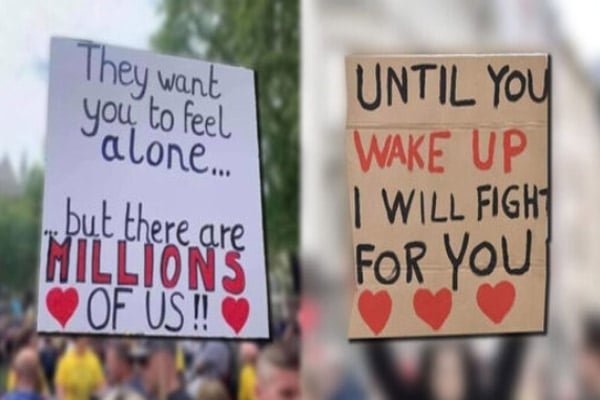 They want
you to feel
alone...
... but there are
MILLIONS
OF US!!
UNTIL YOU
WAKE UP
I WILL FIGHT
FOR YOU